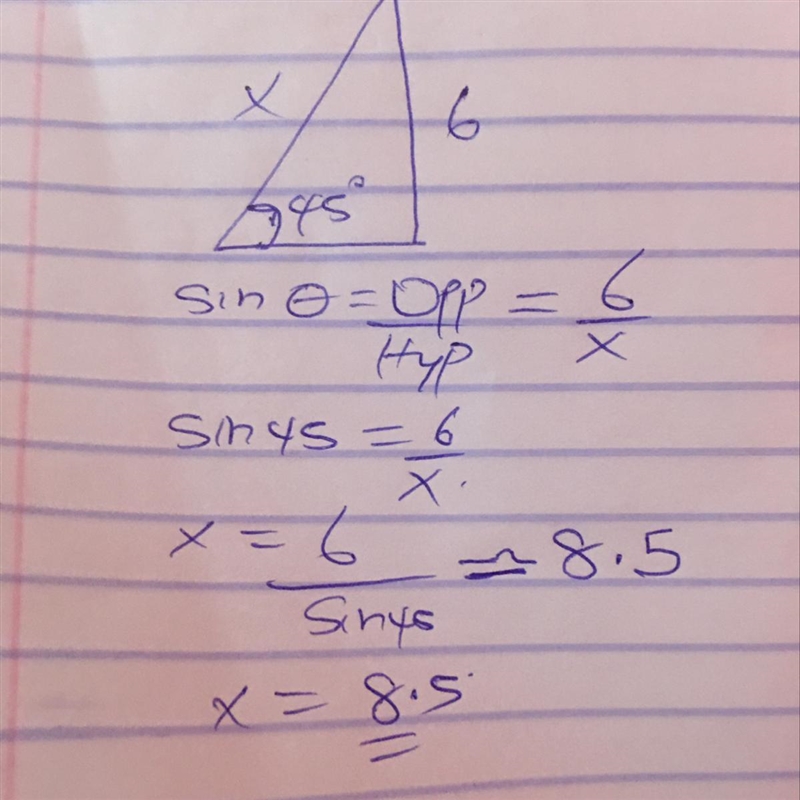 x
6
45°
sin θ = Opp/Hyp = 6/x
sin 45 = 6/x.
x = 6/sin 45 ≃ 8.5
x = 8.5